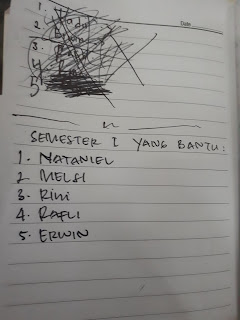 Date
1.
2.
3.
4
5
SEMESTER I YANG BANTU:
1. NATANIEL
2. MELSI
3. RiNi
4. RAFLI
5. ERWIN